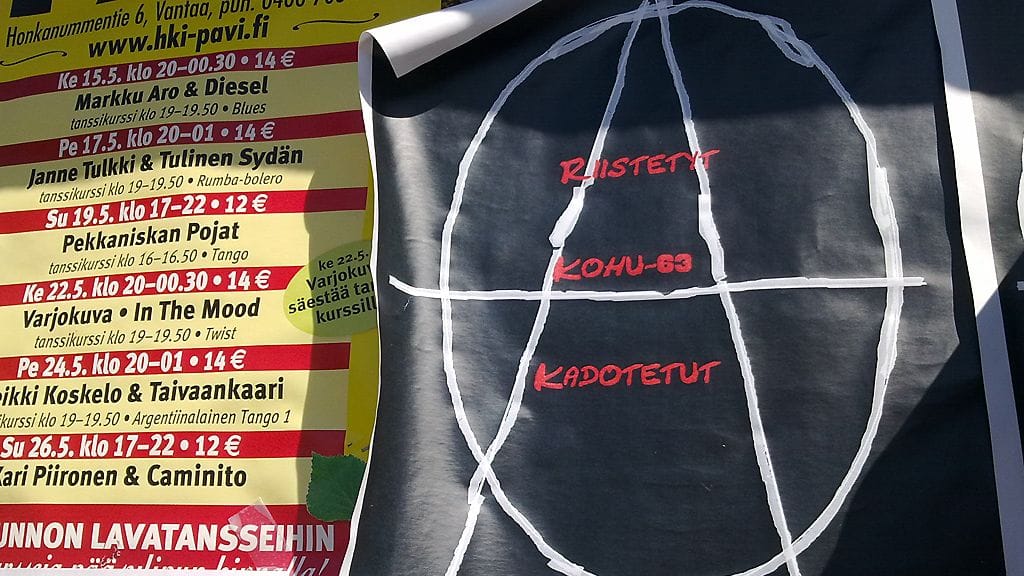 Honkanummentie 6, Vantaa, puh. 0400
www.hki-pavi.fi
Ke 15.5. klo 20–00.30 • 14 €
Markku Aro & Diesel
tanssikurssi klo 19–19.50 • Blues
Pe 17.5. klo 20–01 • 14 €
Janne Tulkki & Tulinen Sydän
tanssikurssi klo 19–19.50 • Rumba-bolero
Su 19.5. klo 17–22 • 12 €
Pekkaniskan Pojat
tanssikurssi klo 16–16.50 • Tango
Ke 22.5. klo 20–00.30 • 14 €
Varjokuva • In The Mood
tanssikurssi klo 19–19.50 • Twist
Pe 24.5. klo 20–01 • 14 €
eikki Koskelo & Taivaankaari
ikurssi klo 19–19.50 • Argentiinalainen Tango 1
Su 26.5. klo 17–22 • 12 €
Kari Piironen & Caminito
UNNON LAVATANSSEIHIN
ke 22.5.
Varjoku
säestää ta
kurssill
RIISTETYT
KOHU-63
KADOTETUT